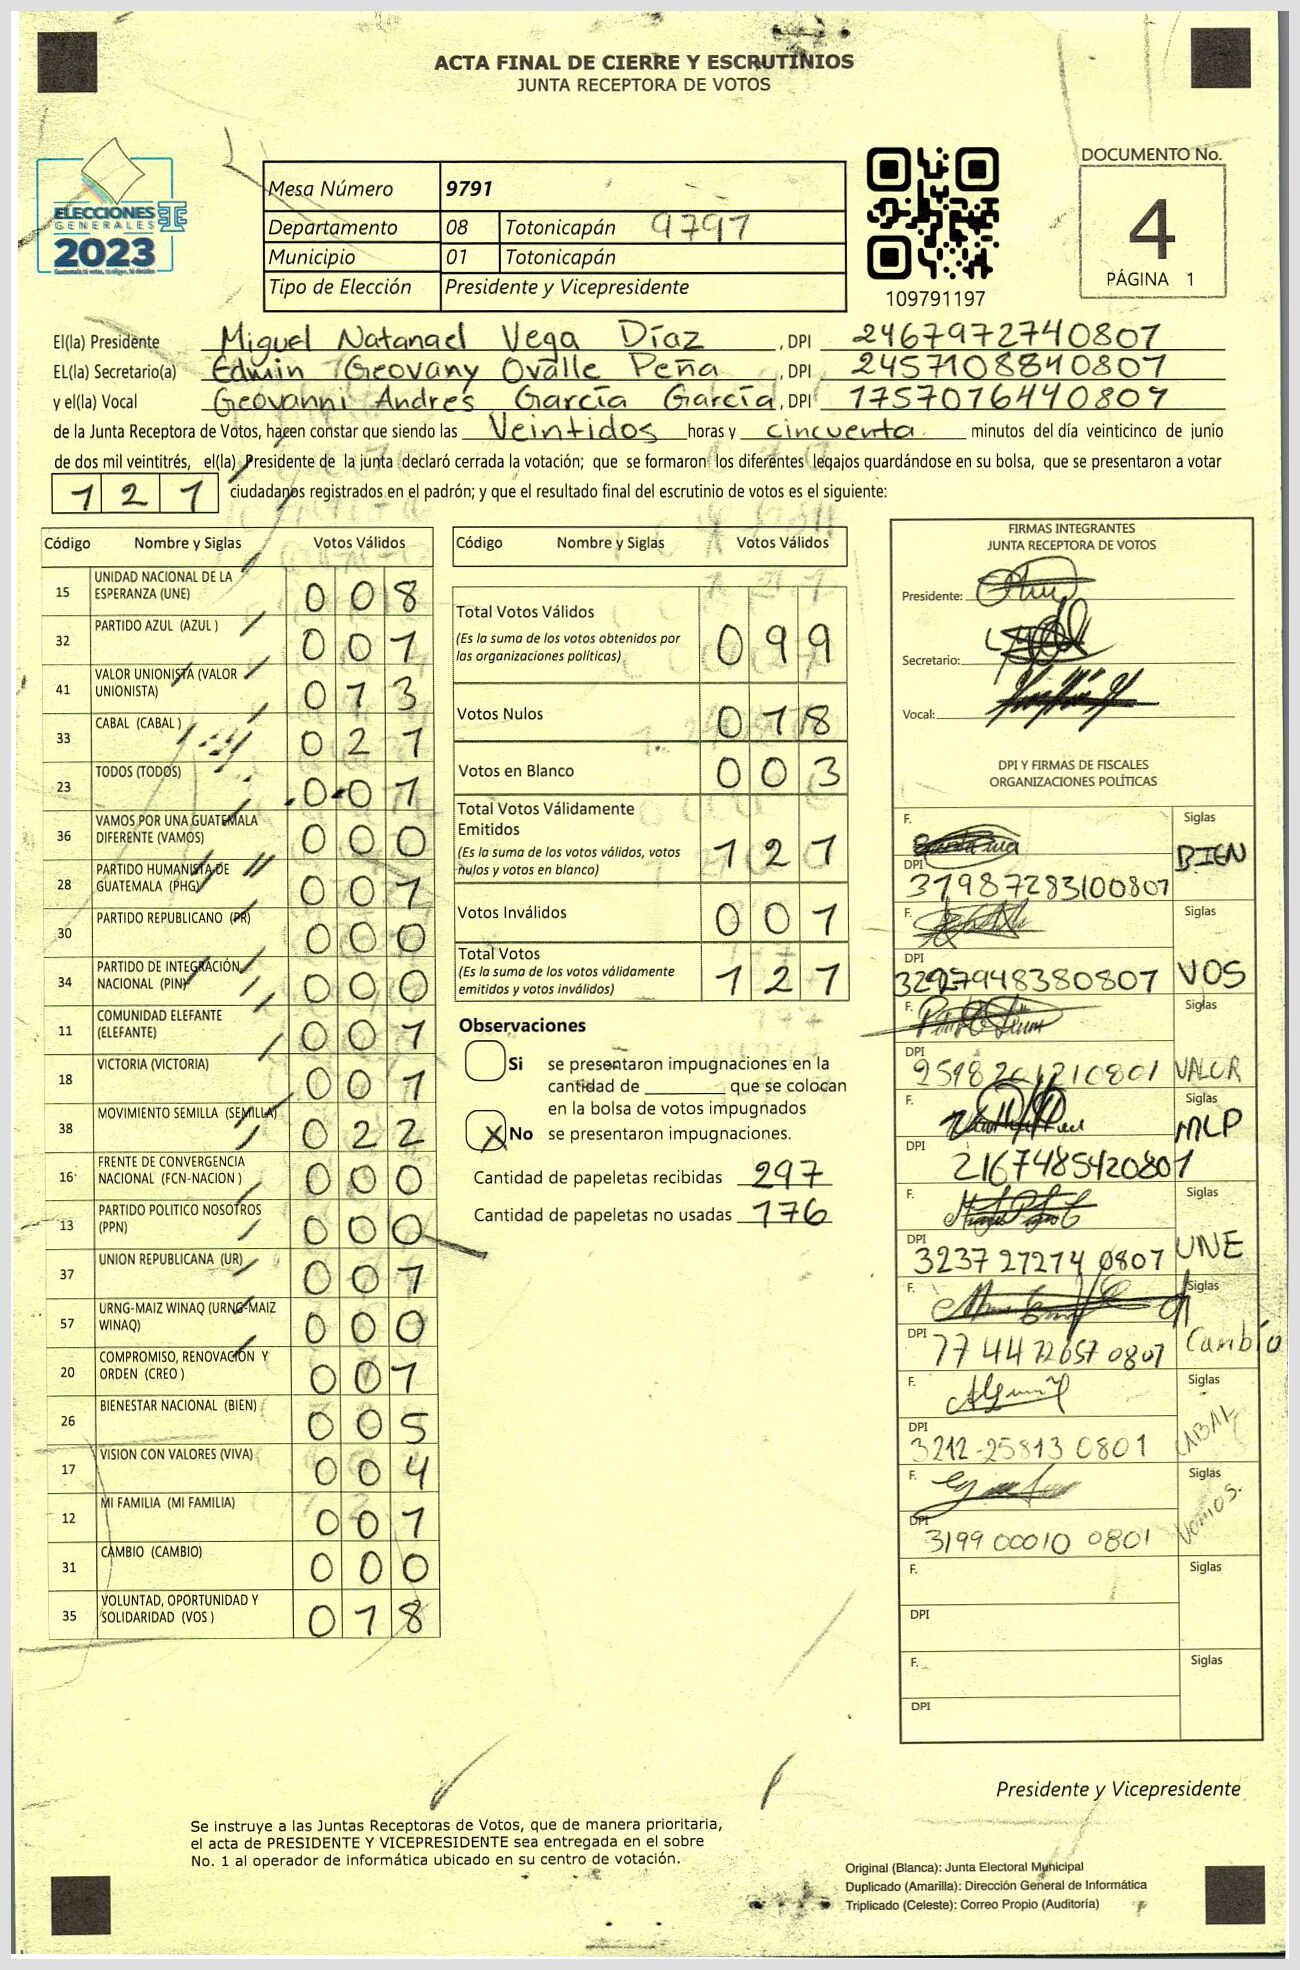 ACTA FINAL DE CIERRE Y ESCRUTINIOS
JUNTA RECEPTORA DE VOTOS
ELECCIONES
GENERALES
2023
Guatemala tú votas, tú eliges, tú decides
Mesa Número 9791
Departamento 08 Totonicapán 9791
Municipio 01 Totonicapán
Tipo de Elección Presidente y Vicepresidente
109791197
DOCUMENTO No.
4
PÁGINA 1
El(la) Presidente Miguel Natanael Vega Díaz, DPI 2467972740801
EL(la) Secretario(a) Edmin Geovany Ovalle Peña, DPI 2457108840801
y el(la) Vocal Geovanni Andres García García, DPI 1757016440801
de la Junta Receptora de Votos, hacen constar que siendo las Veintidos horas y cincuenta minutos del día veinticinco de junio
de dos mil veintitrés, el(la) Presidente de la junta declaró cerrada la votación; que se formaron los diferentes legajos guardándose en su bolsa, que se presentaron a votar
121 ciudadanos registrados en el padrón; y que el resultado final del escrutinio de votos es el siguiente:
Código Nombre y Siglas Votos Válidos
15 UNIDAD NACIONAL DE LA ESPERANZA (UNE) 008
32 PARTIDO AZUL (AZUL ) 001
41 VALOR UNIONISTA (VALOR UNIONISTA) 013
33 CABAL (CABAL ) 021
23 TODOS (TODOS) 001
36 VAMOS POR UNA GUATEMALA DIFERENTE (VAMOS) 000
28 PARTIDO HUMANISTA DE GUATEMALA (PHG) 001
30 PARTIDO REPUBLICANO (PR) 000
34 PARTIDO DE INTEGRACIÓN NACIONAL (PIN) 000
11 COMUNIDAD ELEFANTE (ELEFANTE) 001
18 VICTORIA (VICTORIA) 001
38 MOVIMIENTO SEMILLA (SEMILLA) 022
16 FRENTE DE CONVERGENCIA NACIONAL (FCN-NACION ) 000
13 PARTIDO POLITICO NOSOTROS (PPN) 000
37 UNION REPUBLICANA (UR) 001
57 URNG-MAIZ WINAQ (URNG-MAIZ WINAQ) 000
20 COMPROMISO, RENOVACIÓN Y ORDEN (CREO ) 001
26 BIENESTAR NACIONAL (BIEN) 005
17 VISION CON VALORES (VIVA) 004
12 MI FAMILIA (MI FAMILIA) 001
31 CAMBIO (CAMBIO) 000
35 VOLUNTAD, OPORTUNIDAD Y SOLIDARIDAD (VOS ) 018
Código Nombre y Siglas Votos Válidos
Total Votos Válidos 099
(Es la suma de los votos obtenidos por
las organizaciones políticas)
Votos Nulos 018
Votos en Blanco 003
Total Votos Válidamente
Emitidos 121
(Es la suma de los votos válidos, votos
nulos y votos en blanco)
Votos Inválidos 001
Total Votos 121
(Es la suma de los votos válidamente
emitidos y votos inválidos)
Observaciones
Si se presentaron impugnaciones en la
cantidad de ________ que se colocan
en la bolsa de votos impugnados
X No se presentaron impugnaciones.
Cantidad de papeletas recibidas 297
Cantidad de papeletas no usadas 176
FIRMAS INTEGRANTES
JUNTA RECEPTORA DE VOTOS
Presidente:
Secretario:
Vocal:
DPI Y FIRMAS DE FISCALES
ORGANIZACIONES POLÍTICAS
F. Siglas BIEN
DPI 31987283100801
F. Siglas VOS
DPI
F. Siglas VALOR
DPI
F. Siglas MLP
DPI 2167485420801
F. Siglas UNE
DPI 3237 27274 0807
F. Siglas Cambio
DPI
F. Siglas CABAL
DPI 3212-25813 0801
F. Siglas Vamos.
DPI 3199 00010 0801
F. Siglas
DPI
F. Siglas
DPI
Presidente y Vicepresidente
Se instruye a las Juntas Receptoras de Votos, que de manera prioritaria,
el acta de PRESIDENTE Y VICEPRESIDENTE sea entregada en el sobre
No. 1 al operador de informática ubicado en su centro de votación.
Original (Blanca): Junta Electoral Municipal
Duplicado (Amarilla): Dirección General de Informática
Triplicado (Celeste): Correo Propio (Auditoría)